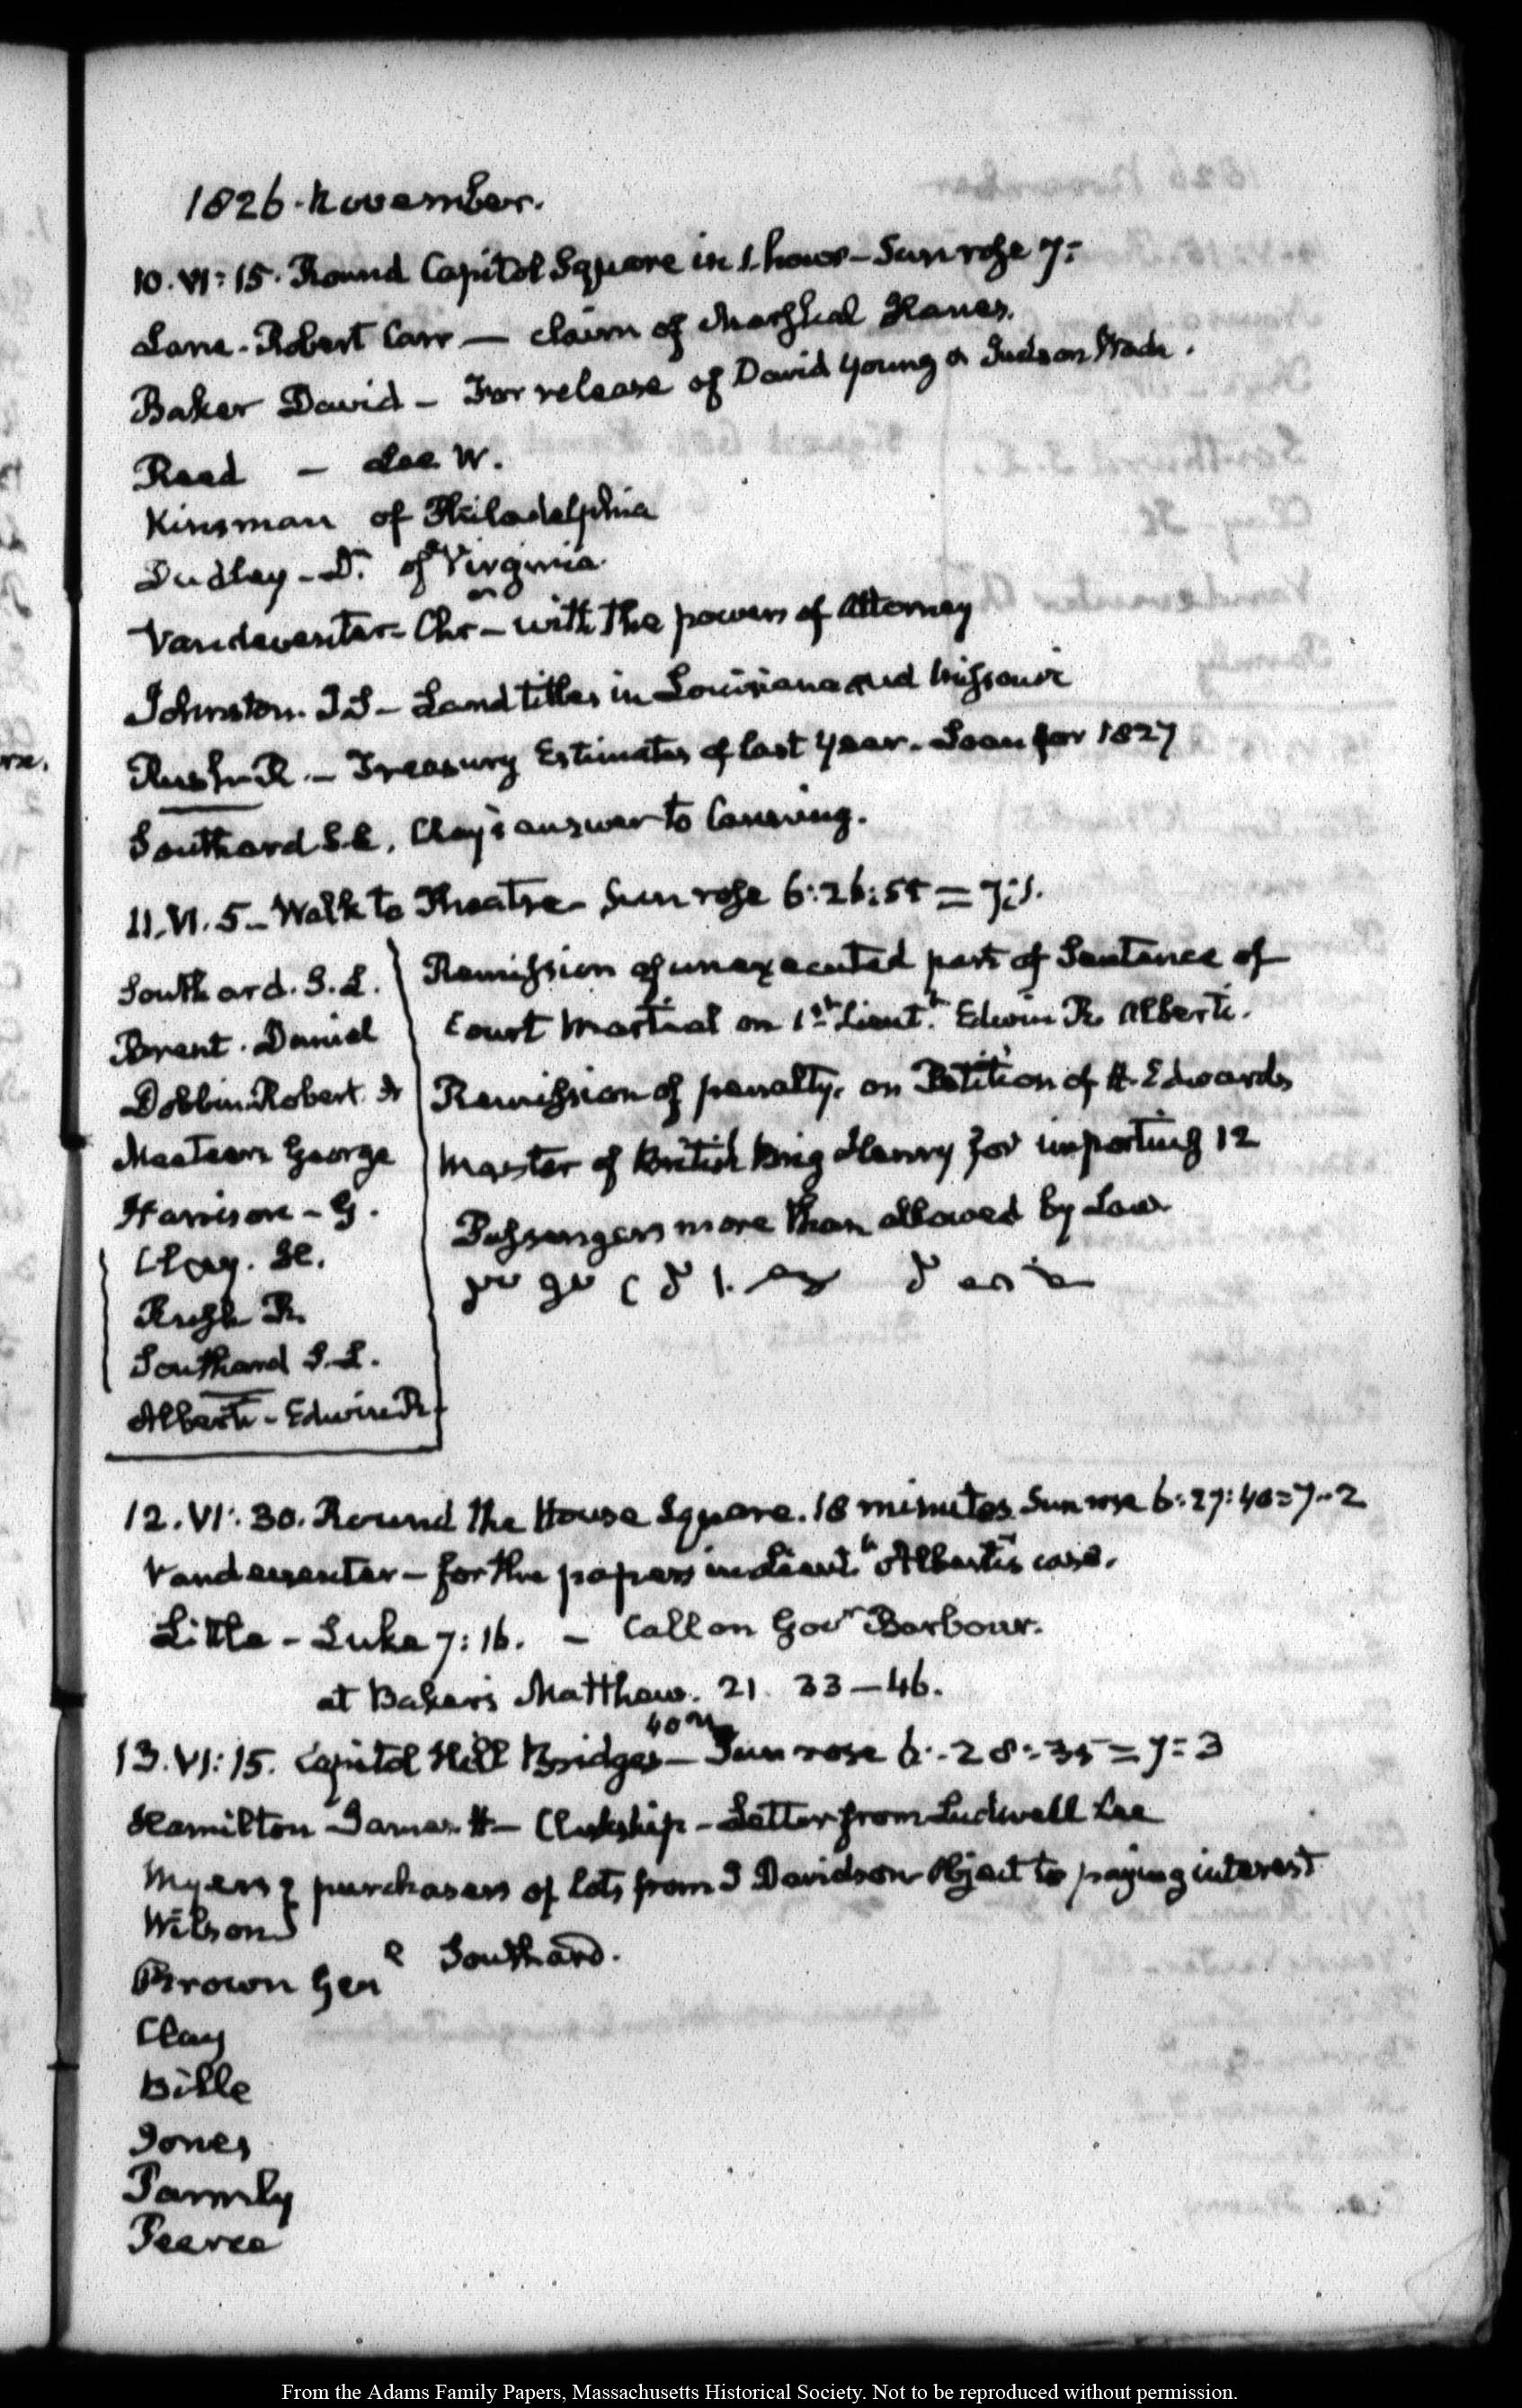 1826. November.
10. VI: 15. Round Capitol Square in 1. hour — Sun rose 7:
Lane. Robert Carr — claim of Marshal Hanes.
Baker David — For release of David Young & Judson Wade.
Read — Lee W.
Kinsman of Philadelphia
Dudley — D. of Virginia
Vandeventer — Chr — with the powers of Attorney
Johnston. J S — Land titles in Louisiana and Missouri
Rush R. — Treasury Estimates of last year. Loan for 1827
Southard S. L. Clay's answer to Canning.
11. VI. 5 — Walk to Theatre — Sun rose 6:26:54 = 7:1.
Southard. S. L.
Brent. Daniel
Dobbin Robert
George
Harrison — G.
Clay. H.
Rush R.
Southard S. L.
Alberti — Edwin R.
Remission of unexecuted part of Sentence of
Court Martial on 1st Lieut. Edwin R. Alberti.
Remission of penalty, on Petition of H. Edwards
Master of British Brig Henry for importing 12
Passengers more than allowed by Law
12. VI: 30. Round the House Square. 18 minutes Sun rose 6:27:40 = 7..2
Vandeventer — for the papers in Lieut. Alberti's case.
Little — Luke 7: 16. — Call on Govr Barbour.
at Baker's Matthew. 21. 33 — 46.
13. VI: 15. Capitol Hill Bridges — 40m Sun rose 6:28:35 = 7:3
Hamilton James H — Clerkship — Letter from Ludwell Lee
Myers } purchasers of lots from J Davidson object to paying interest
Wilson }
Brown Genl Southard.
Clay
Bille
Jones
Parmly
Pearce
From the Adams Family Papers, Massachusetts Historical Society. Not to be reproduced without permission.